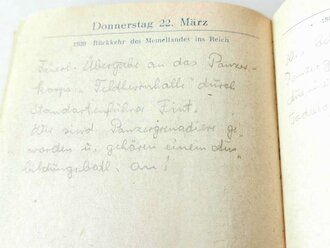 Donnerstag 22. März
1939 Rückkehr des Memellandes ins Reich
Feierl. Übergabe an das Panzer-
korps „Feldherrnhalle" durch
Standartenführer
Wir sind Panzergrenadiere ge-
worden u. gehören einem Aus-
bildungsbatl. an!